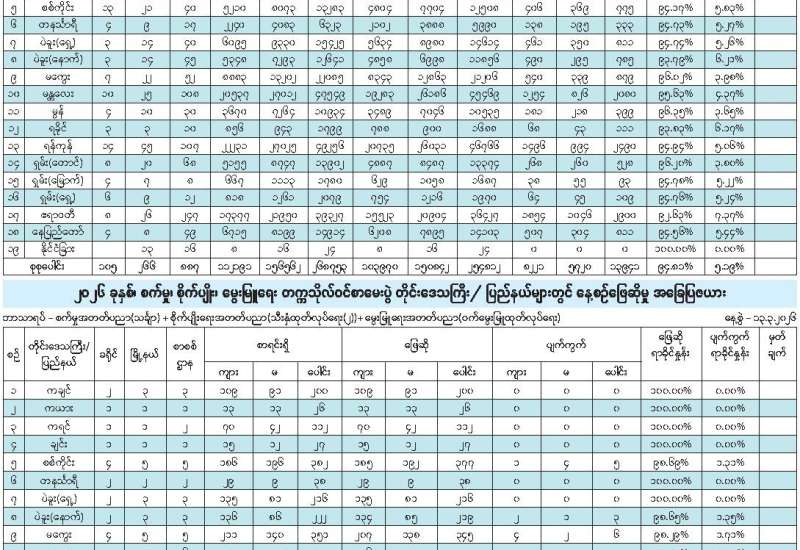 ၅ စစ်ကိုင်း ၁၃ ၂၁ ၄၀ ၅၂၁၀ ၈၀၇၃ ၁၃၂၈၃ ၄၈၀၄ ၇၇၀၄ ၁၂၅၀၈ ၄၀၆ ၃၆၉ ၇၇၅ ၉၄.၁၇% ၅.၈၃%
၆ တနင်္သာရီ ၄ ၉ ၁၇ ၂၂၄၀ ၄၀၈၃ ၆၃၂၃ ၂၁၀၂ ၃၈၈၈ ၅၉၉၀ ၁၃၈ ၁၉၅ ၃၃၃ ၉၄.၇၃% ၅.၂၇%
၇ ပဲခူး(ရှေ့) ၃ ၁၄ ၄၀ ၆၀၉၅ ၉၃၃၀ ၁၅၄၂၅ ၅၆၃၄ ၈၉၈၀ ၁၄၆၁၄ ၄၆၁ ၃၅၀ ၈၁၁ ၉၄.၇၄% ၅.၂၆%
၈ ပဲခူး(နောက်) ၃ ၁၄ ၄၅ ၅၃၄၈ ၇၂၉၃ ၁၂၆၄၁ ၄၈၅၈ ၆၉၉၈ ၁၁၈၅၆ ၄၉၀ ၂၉၅ ၇၈၅ ၉၃.၇၉% ၆.၂၁%
၉ မကွေး ၇ ၂၂ ၅၂ ၈၈၈၃ ၁၃၂၀၂ ၂၂၀၈၅ ၈၃၄၃ ၁၂၈၆၃ ၂၁၂၀၆ ၅၄၀ ၃၃၉ ၈၇၉ ၉၆.၀၂% ၃.၉၈%
၁၀ မန္တလေး ၁၀ ၂၅ ၁၀၈ ၂၀၅၃၇ ၂၇၀၁၂ ၄၇၅၄၉ ၁၉၂၈၃ ၂၆၁၈၆ ၄၅၄၆၉ ၁၂၅၄ ၈၂၆ ၂၀၈၀ ၉၅.၆၃% ၄.၃၇%
၁၁ မွန် ၄ ၁၀ ၃၀ ၃၆၇၀ ၇၂၆၄ ၁၀၉၃၄ ၃၄၈၉ ၇၀၄၆ ၁၀၅၃၅ ၁၈၁ ၂၁၈ ၃၉၉ ၉၆.၃၅% ၃.၆၅%
၁၂ ရခိုင် ၃ ၃ ၁၀ ၈၅၆ ၉၄၃ ၁၇၉၉ ၇၈၈ ၉၀၀ ၁၆၈၈ ၆၈ ၄၃ ၁၁၁ ၉၃.၈၃% ၆.၁၇%
၁၃ ရန်ကုန် ၁၄ ၄၅ ၁၀၇ ၂၂၂၃၁ ၂၇၀၂၅ ၄၉၂၅၆ ၂၀၇၃၅ ၂၆၀၃၁ ၄၆၇၆၆ ၁၄၉၆ ၉၉၄ ၂၄၉၀ ၉၄.၉၄% ၅.၀၆%
၁၄ ရှမ်း(တောင်) ၈ ၂၀ ၆၈ ၅၁၅၅ ၈၇၄၇ ၁၃၉၀၂ ၄၈၈၇ ၈၄၈၇ ၁၃၃၇၄ ၂၆၈ ၂၆၀ ၅၂၈ ၉၆.၂၀% ၃.၈၀%
၁၅ ရှမ်း(မြောက်) ၄ ၇ ၈ ၆၆၇ ၁၁၁၃ ၁၇၈၀ ၆၂၉ ၁၀၅၈ ၁၆၈၇ ၃၈ ၅၅ ၉၃ ၉၄.၇၈% ၅.၂၂%
၁၆ ရှမ်း(ရှေ့) ၆ ၉ ၁၂ ၈၁၈ ၁၂၆၁ ၂၀၇၉ ၇၅၄ ၁၂၁၆ ၁၉၇၀ ၆၄ ၄၅ ၁၀၉ ၉၄.၇၆% ၅.၂၄%
၁၇ ဧရာဝတီ ၈ ၂၆ ၂၄၇ ၁၇၃၇၇ ၂၁၉၅၀ ၃၉၃၂၇ ၁၅၅၂၃ ၂၀၉၀၄ ၃၆၄၂၇ ၁၈၅၄ ၁၀၄၆ ၂၉၀၀ ၉၂.၆၃% ၇.၃၇%
၁၈ နေပြည်တော် ၄ ၈ ၄၉ ၆၇၁၅ ၈၁၉၉ ၁၄၉၁၄ ၆၂၀၈ ၇၈၉၅ ၁၄၁၀၃ ၅၀၇ ၃၀၄ ၈၁၁ ၉၄.၅၆% ၅.၄၄%
၁၉ နိုင်ငံခြား ၁၃ ၁၆ ၈ ၁၆ ၂၄ ၈ ၁၆ ၂၄ ၀ ၀ ၀ ၁၀၀.၀၀% ၀.၀၀%
စုစုပေါင်း ၁၀၅ ၂၆၆ ၈၈၇ ၁၁၂၁၉၁ ၁၅၆၅၆၂ ၂၆၈၇၅၃ ၁၀၃၉၇၀ ၁၅၀၈၄၂ ၂၅၄၈၁၂ ၈၂၂၁ ၅၇၂၀ ၁၃၉၄၁ ၉၄.၈၁% ၅.၁၉%
၂၀၂၆ ခုနှစ်၊ စက်မှု၊ စိုက်ပျိုး၊ မွေးမြူရေး တက္ကသိုလ်ဝင်စာမေးပွဲ တိုင်းဒေသကြီး/ ပြည်နယ်များတွင် နေ့စဉ်ဖြေဆိုမှု အခြေပြဇယား
ဘာသာရပ် – စက်မှုအတတ်ပညာ(သင်္ချာ) + စိုက်ပျိုးရေးအတတ်ပညာ(သီးနှံထုတ်လုပ်ရေး(၂))+ မွေးမြူရေးအတတ်ပညာ(ဝက်မွေးမြူထုတ်လုပ်ရေး) နေ့စွဲ – ၁၃.၃.၂၀၂၆
စဉ် တိုင်းဒေသကြီး/ ပြည်နယ် ခရိုင် မြို့နယ် စာစစ်ဌာန စာရင်းရှိ ဖြေဆို ပျက်ကွက် ဖြေဆိုရာခိုင်နှုန်း ပျက်ကွက်ရာခိုင်နှုန်း မှတ်ချက်
ကျား မ ပေါင်း ကျား မ ပေါင်း ကျား မ ပေါင်း
၁ ကချင် ၂ ၃ ၃ ၁၀၉ ၉၁ ၂၀၀ ၁၀၉ ၉၁ ၂၀၀ ၀ ၀ ၀ ၁၀၀.၀၀% ၀.၀၀%
၂ ကယား ၁ ၁ ၁ ၁၃ ၁၃ ၂၆ ၁၃ ၁၃ ၂၆ ၀ ၀ ၀ ၁၀၀.၀၀% ၀.၀၀%
၃ ကရင် ၁ ၁ ၂ ၇၀ ၄၂ ၁၁၂ ၇၀ ၄၂ ၁၁၂ ၀ ၀ ၀ ၁၀၀.၀၀% ၀.၀၀%
၄ ချင်း ၁ ၁ ၁ ၁၅ ၁၂ ၂၇ ၁၅ ၁၂ ၂၇ ၀ ၀ ၀ ၁၀၀.၀၀% ၀.၀၀%
၅ စစ်ကိုင်း ၄ ၅ ၅ ၁၈၆ ၁၉၆ ၃၈၂ ၁၈၅ ၁၉၂ ၃၇၇ ၁ ၄ ၅ ၉၈.၆၉% ၁.၃၁%
၆ တနင်္သာရီ ၂ ၂ ၂ ၂၉ ၉ ၃၈ ၂၉ ၉ ၃၈ ၀ ၀ ၀ ၁၀၀.၀၀% ၀.၀၀%
၇ ပဲခူး(ရှေ့) ၂ ၃ ၃ ၁၃၅ ၈၁ ၂၁၆ ၁၃၅ ၈၁ ၂၁၆ ၀ ၀ ၀ ၁၀၀.၀၀% ၀.၀၀%
၈ ပဲခူး(နောက်) ၂ ၃ ၃ ၁၃၆ ၈၆ ၂၂၂ ၁၃၄ ၈၅ ၂၁၉ ၂ ၁ ၃ ၉၈.၆၅% ၁.၃၅%
၉ မကွေး ၄ ၅ ၅ ၂၁၁ ၁၄၀ ၃၅၁ ၂၀၇ ၁၃၈ ၃၄၅ ၄ ၂ ၆ ၉၈.၂၉% ၁.၇၁%